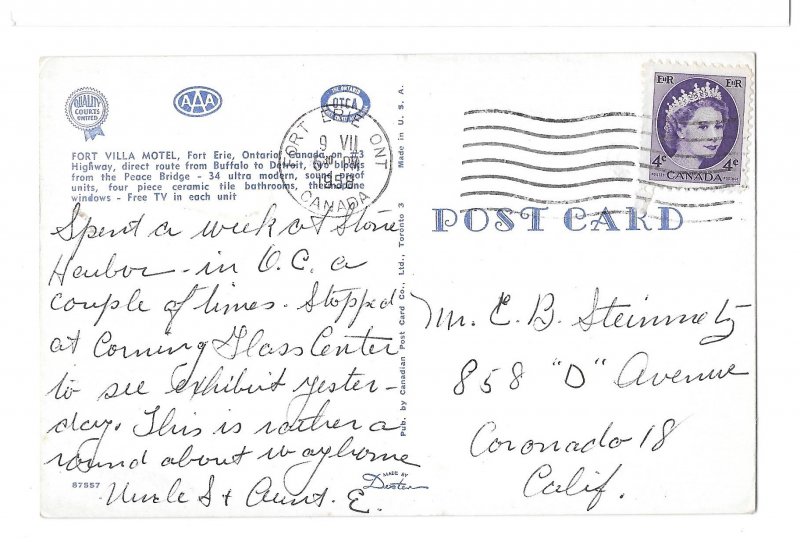 QUALITY
COURTS
UNITED
AAA
THE ONTARIO
OTCA
FORT VILLA MOTEL, Fort Erie, Ontario, Canada on #3
Highway, direct route from Buffalo to Detroit, two blocks
from the Peace Bridge - 34 ultra modern, sound proof
units, four piece ceramic tile bathrooms, thermopane
windows - Free TV in each unit
FORT ERIE ONT
9 VII
PM
1958
CANADA
Made in U. S. A.
Pub. by Canadian Post Card Co., Ltd., Toronto 3
EIIR EIIR
4c 4c
POSTES CANADA POSTAGE
POST CARD
Spent a week at Stone
Harbor - in O.C. a
couple of times. Stopped
at Corning Glass Center
to see exhibit yester-
day. This is rather a
round about way home
Uncle S & Aunt. E.
87557
MADE BY
Dexter
Mr. E. B. Steinmetz
858 "D" Avenue
Coronado 18
Calif.